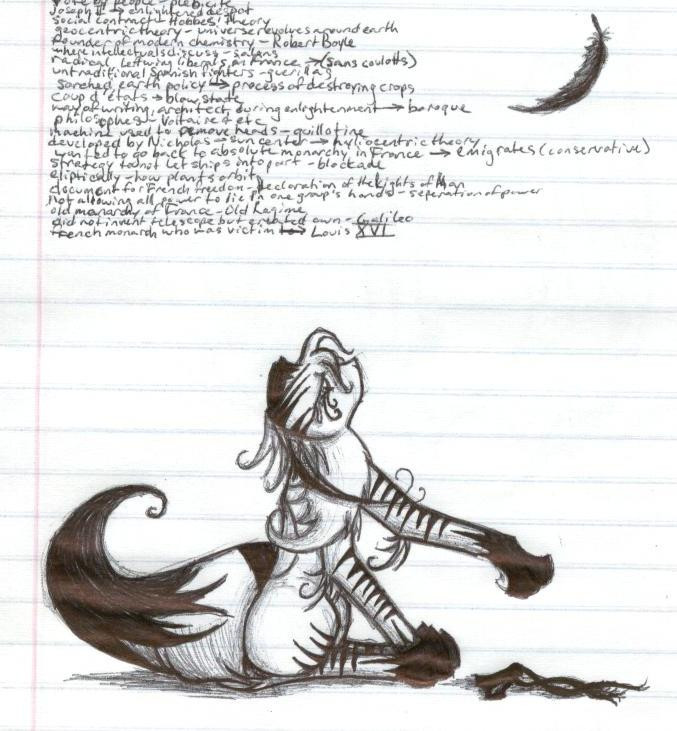 vote by people - plebicite
Joseph II → enlightened despot
Social contract - Hobbes' theory
geocentric theory - universe revolves around earth
founder of modern chemistry - Robert Boyle
where intellectuals discuss - salons
radical, leftwing liberals in France → (sans coulotts)
untraditional Spanish fighters - guerillas
sorched earth policy → process of destroying crops
coup d'etats → blow state
way of writing, architect, during enlightenment → baroque
philosophes - Voltaire + etc
machine used to remove heads - guillotine
developed by Nicholas → sun center → heliocentric theory
wanted to go back to absolute monarchy in France → emigrates (conservative)
strategy to not let ships into port - blockade
eliptically - how plants orbit
document for French freedom - Decloration of the Rights of Man
Not allowing all power to lie in one group's hands - seperation of power
old monarchy of France - Old Regime
did not invent telescope but created own - Galileo
French monarch who was victim → Louis XVI